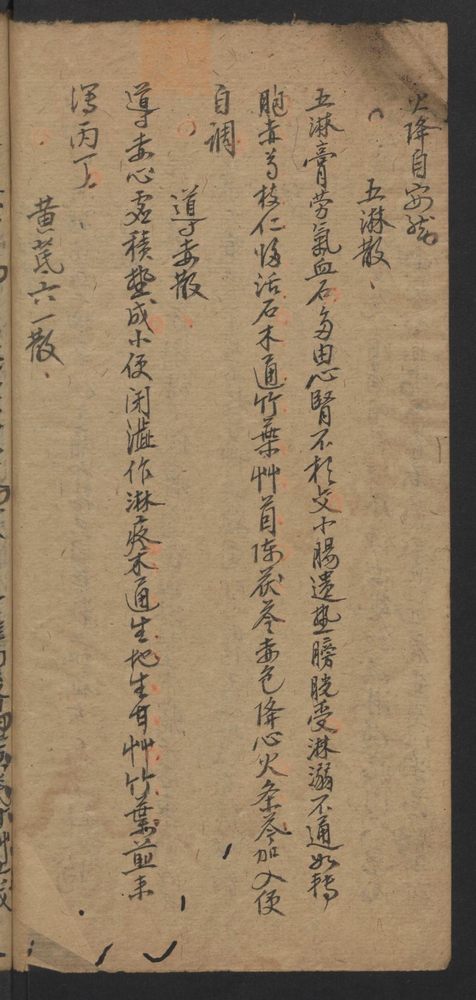 火降自安然
五淋散
五淋膏劳氣血石多由心腎不相交小腸遺熱膀胱受淋溺不通如轉
胞赤芍枝仁滑石木通竹葉艸茵陈茯苓赤色降心火条芩加入便
自調
導赤散
導赤心虚積热成小便闭澁作淋疼木通生地生甘艸竹葉煎来
瀉丙丁
黄芪六一散